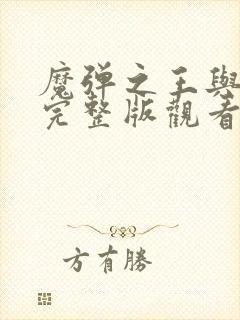 魔彈之王與
完整版觀看
方有勝